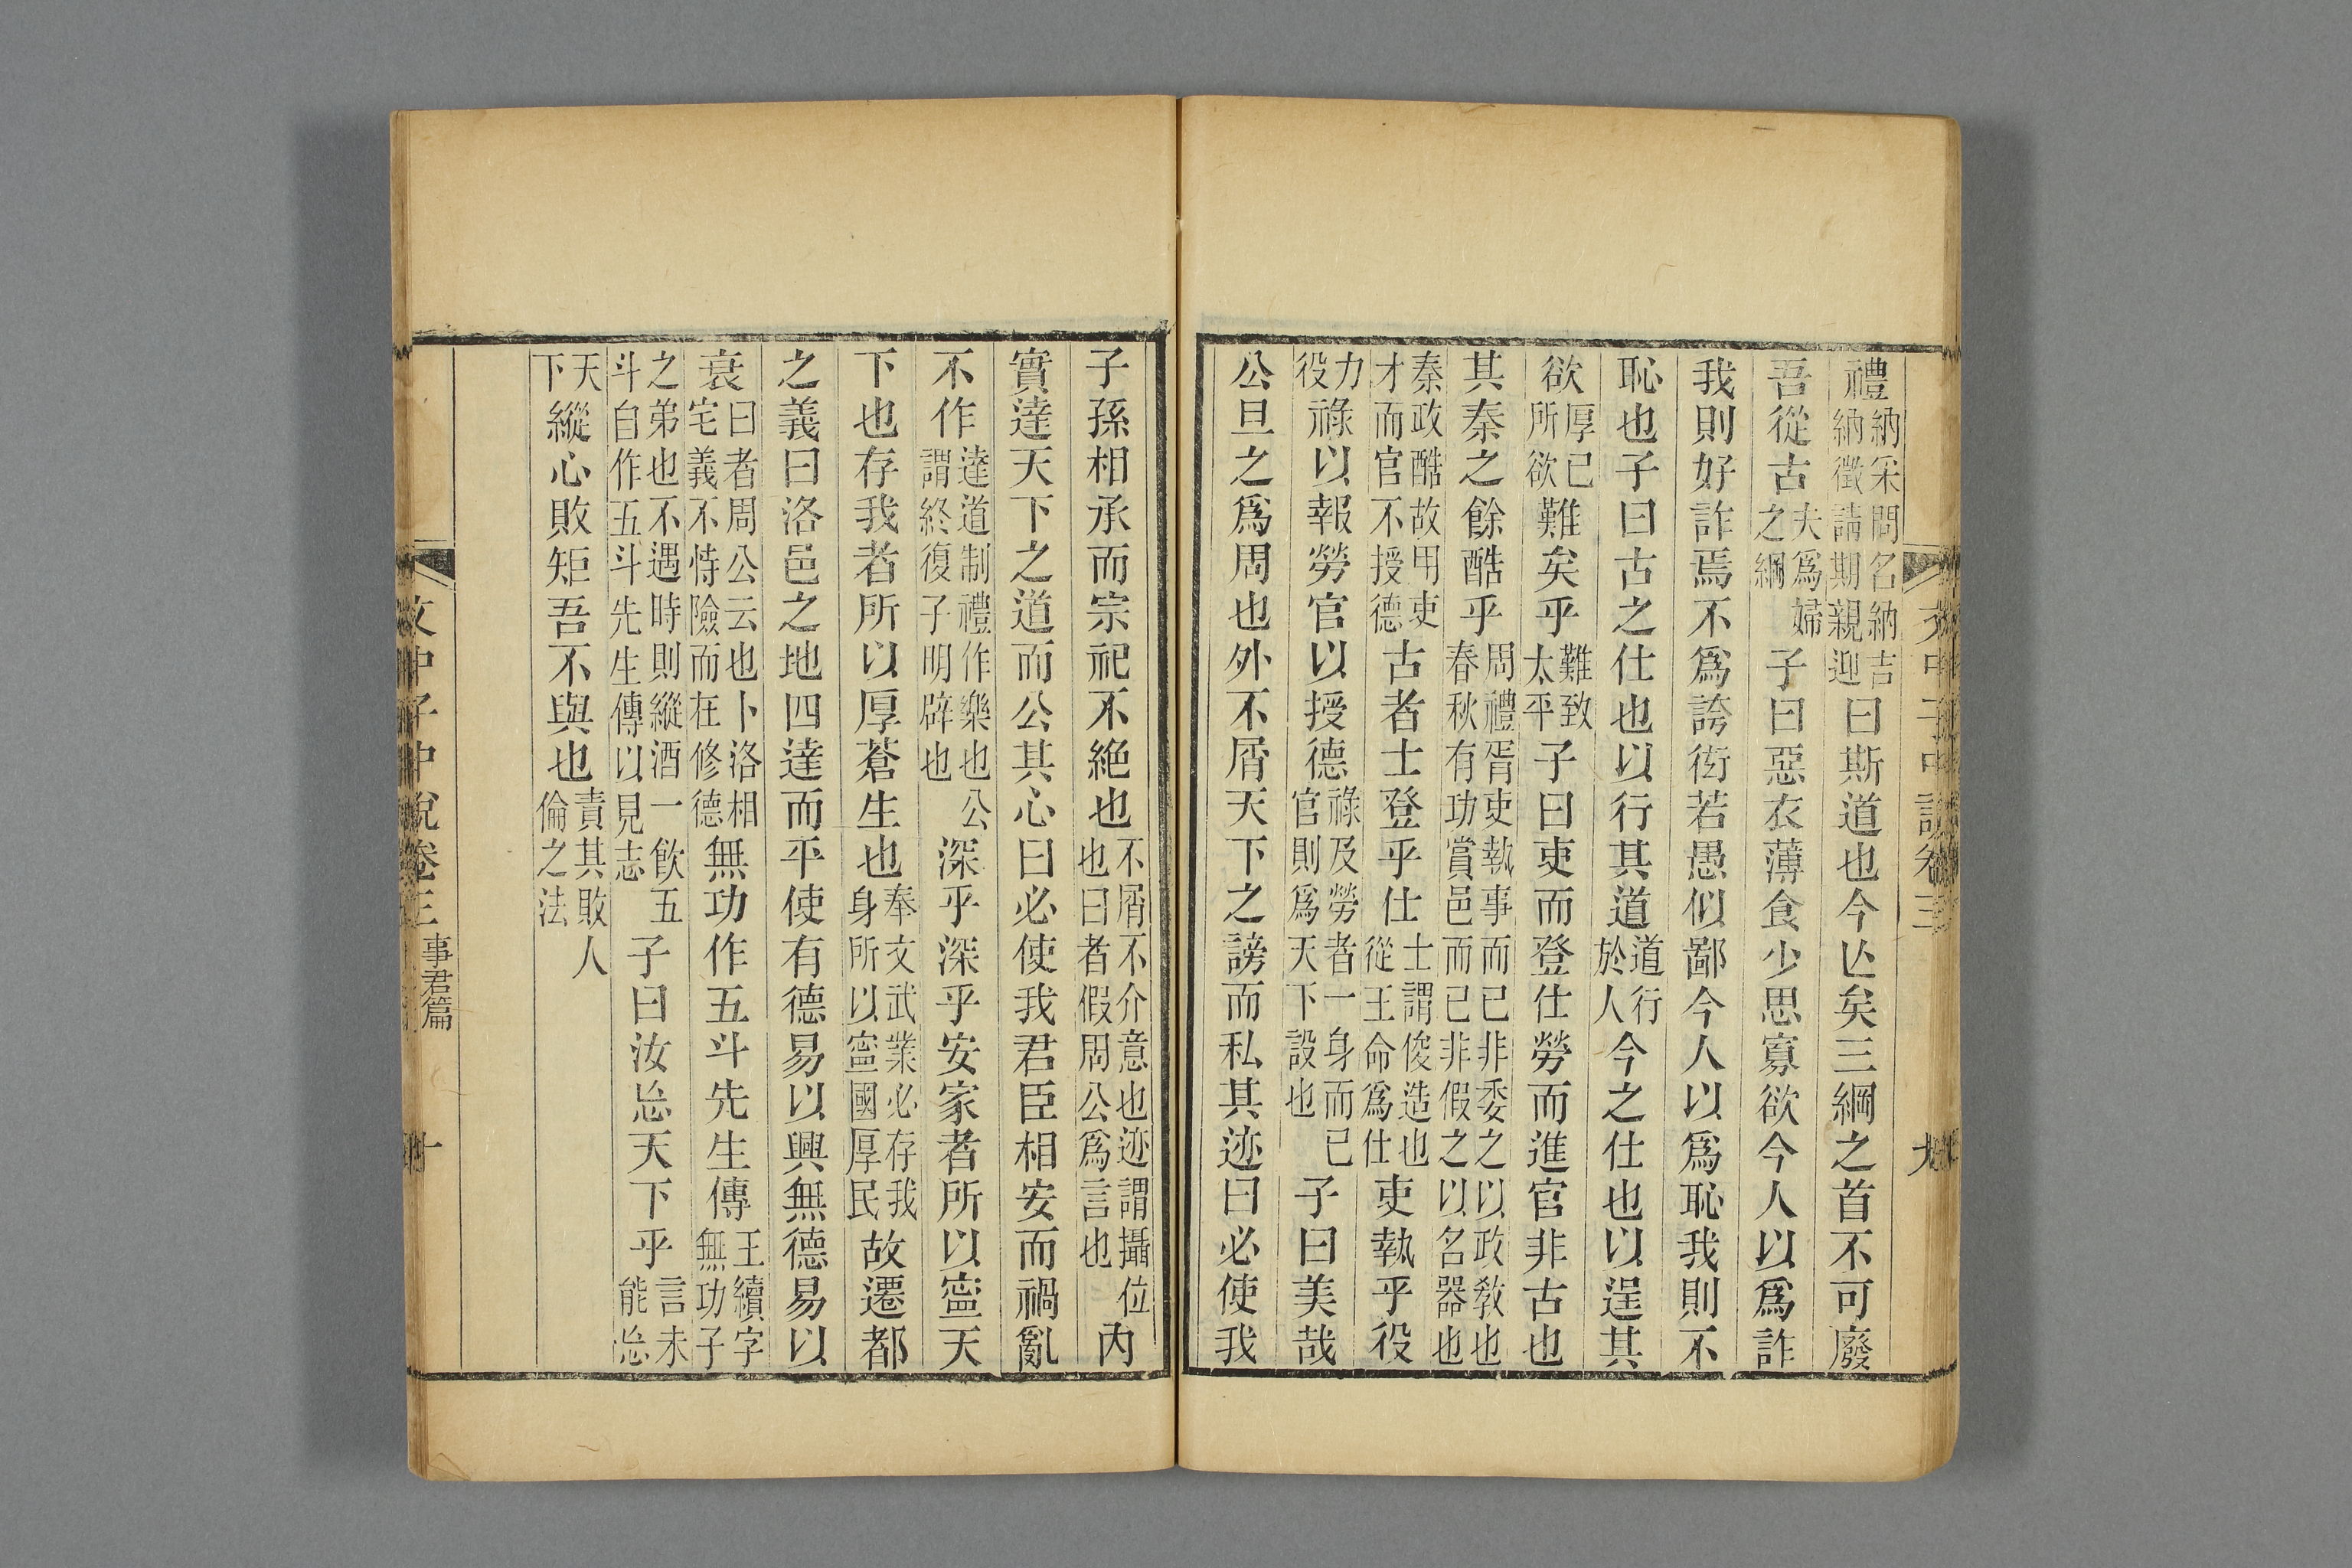 禮納采問名納吉納徵請期親迎曰斯道也今亾矣三綱之首不可廢
吾從古夫爲婦之綱子曰惡衣薄食少思寡欲今人以爲詐
我則好詐焉不爲誇衒若愚似鄙今人以爲恥我則不
恥也子曰古之仕也以行其道道行於人今之仕也以逞其
欲厚已所欲難矣乎難致太平子曰吏而登仕勞而進官非古也
其秦之餘酷乎周禮胥吏執事而已非委之以政敎也春秋有功賞邑而已非假之以名器也
秦政酷故用吏才而官不授德古者士登乎仕士謂俊造也從王命爲仕吏執乎役
力役祿以報勞官以授德祿及勞者一身而已官則爲天下設也子曰美哉
公旦之爲周也外不屑天下之謗而私其迹曰必使我
子孫相承而宗祀不絕也不屑不介意也迹謂攝位也曰者假周公爲言也內
實達天下之道而公其心曰必使我君臣相安而禍亂
不作達道制禮作樂也公謂終復子明辟也深乎深乎安家者所以寧天
下也存我者所以厚蒼生也奉文武業必存我身所以寧國厚民故遷都
之義曰洛邑之地四達而平使有德易以興無德易以
衰曰者周公云也卜洛相宅義不恃險而在修德無功作五斗先生傳王績字無功子
之弟也不遇時則縱酒一飲五斗自作五斗先生傳以見志子曰汝忘天下乎言未能忘
天下縱心敗矩吾不與也責其敗人倫之法
文中子中說卷三
事君篇
十